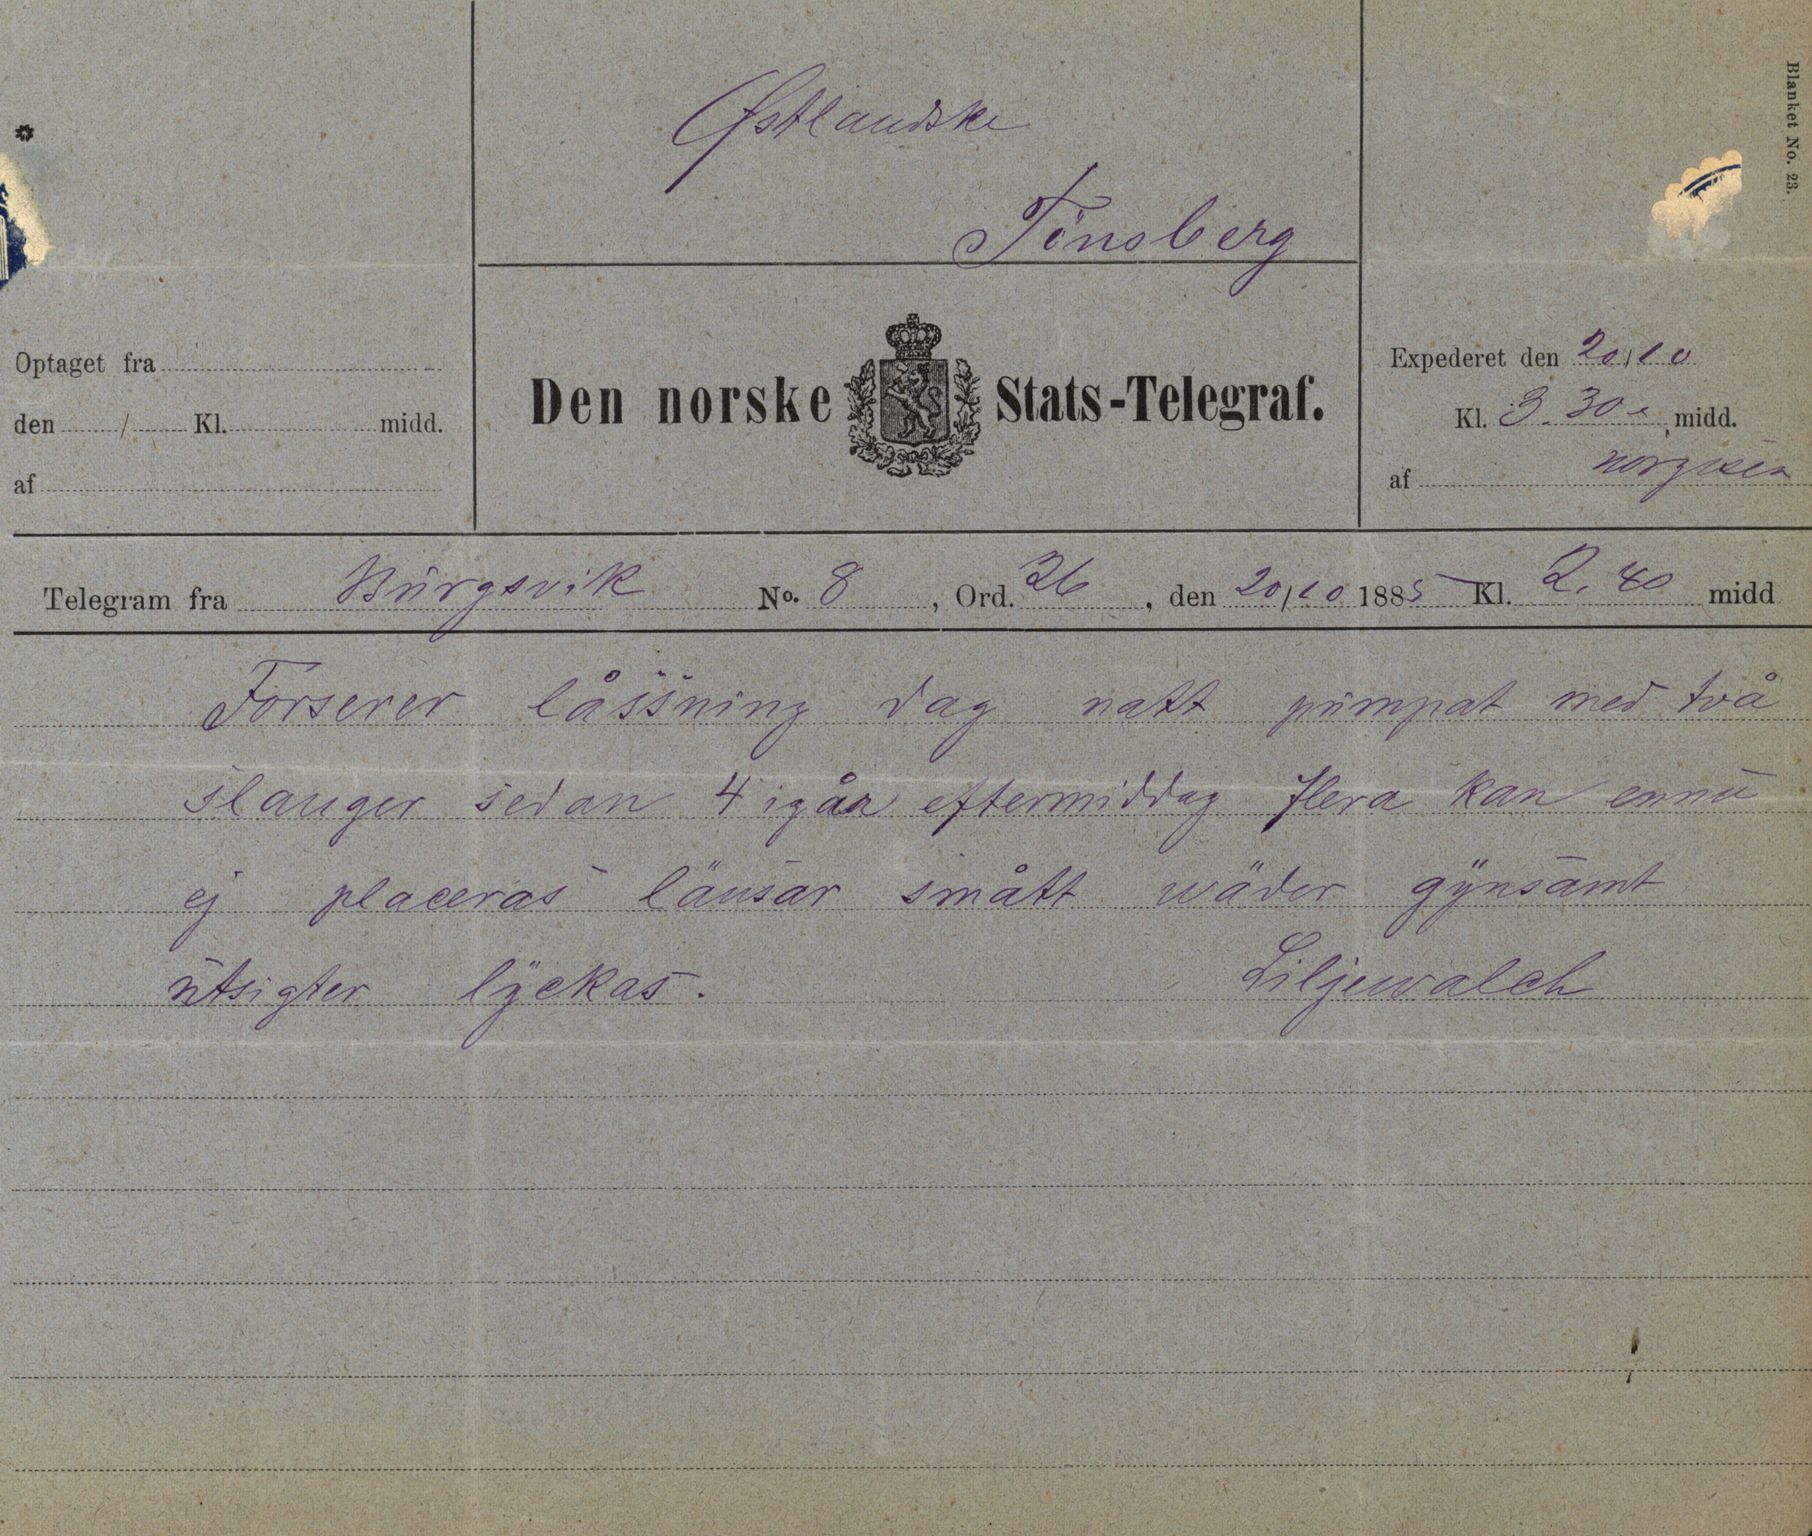 Blanket No. 23.
*
Østlandske
Tönsberg
Optaget fra
den / Kl. midd.
af
Den norske Stats-Telegraf.
Expederet den 20/10
Kl. 3.30 e midd.
af
Telegram fra Burgsvik No. 8, Ord. 26, den 20/10 1885 Kl. 2.40 midd
Forserer låssning dag natt pumpat med två
slanger sedan 4 igår eftermiddag flera kan ennu
ej placeras länsar smått wäder gynsamt
utsigter lyckas.
Liljewalch